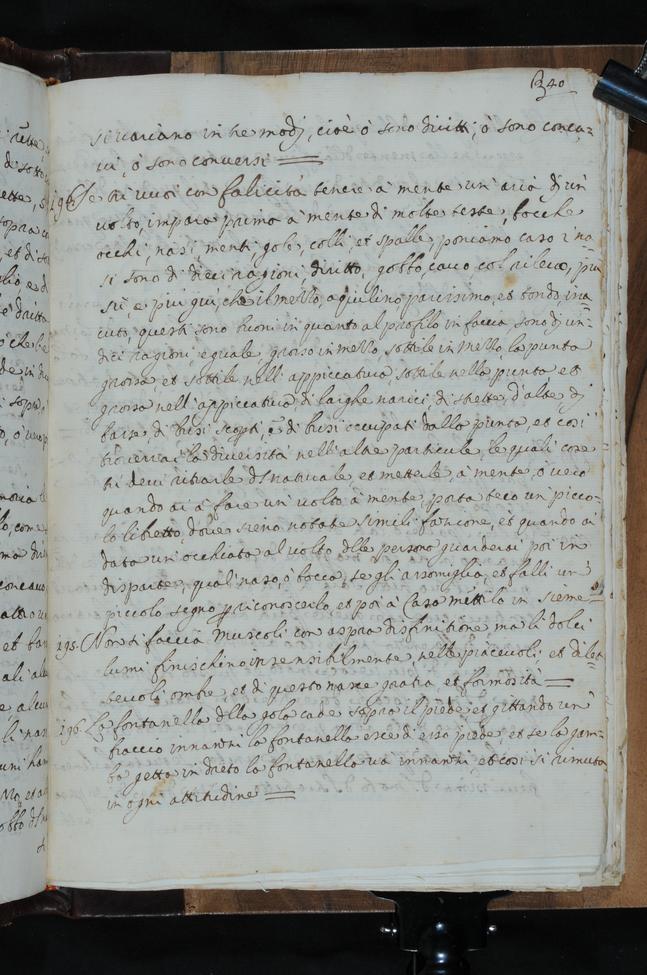 340
si variano in tre modj, cioè ò sono diritti, ò sono conca-
ui, ò sono conuersi =
194 Se tu vuoi con falicità tenere à mente un aria di un
uolto, impara primo à mente di molte teste, bocche
occhi, nasi, menti, gole, colli, et spalle, poniamo caso i na-
si sono di dieci ragioni, diritto, gobbo, cauo col rileuo, piu
sù, e piu giù, che il mezzo, aquilino, parissimo, et tondo, et
acuto, questi sono buoni in quanto al profilo in faccia, sono dj un-
dici ragioni, equale, grosso in mezzo, sottile in mezzo, la punta
grossa, et sottile nell'appiccatura, sottile nella punta, et
grossa nell'appiccatura, di larghe narici, di strette, d'alte, dj
basse, di busi scopti, e di busi occupati dalla punta, et così
trouerrai la diuersità nell'altre particule, le quali cose
tu deui ritrarle dl naturale, et metterle à mente, ò uero
quando ai à fare un uolto à mente, porta teco un picco-
lo libretto, doue sieno notate simili fazzione, et quando ai
dato un occhiata al uolto dlla persona guarderai poi in
disparte, qual naso, ò bocca, se gli assomiglia, et falli un
piccolo segno p riconoscerlo, et poi à Casa mettilo in sieme
195. Non si faccia Muscoli con aspra difinitione, ma li dolci
lumi finischino insensibilmente, nelle piaceuoli et dilet-
teuoli ombre, et di questo nasce gratia et formosità =
196 La fontanella dlla gola cade sopra il piede, et gittando un
braccio innanzi la fontanella esce di esso piede, et se la gam-
ba getta in dreto la fontanella uà innanzi et così si rimuta
in ogni attitudine =